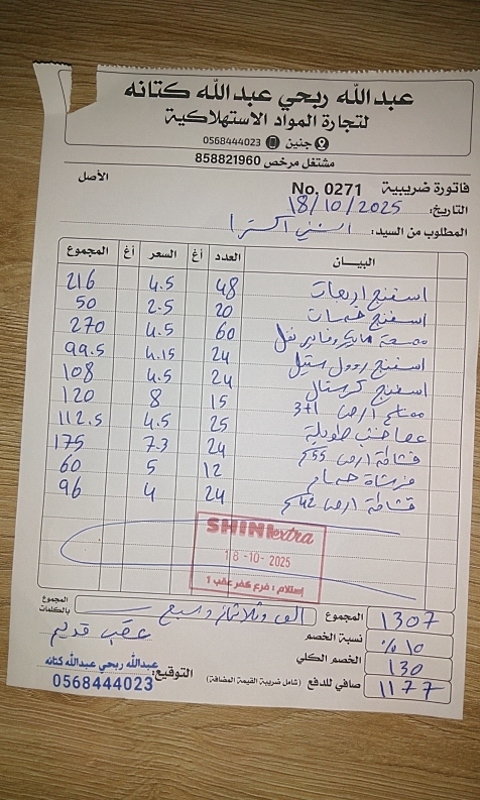 عبدالله ربحي عبدالله كتانه
لتجارة المواد الاستهلاكية
جنين 0568444023
مشتغل مرخص 858821960
فاتورة ضريبية No. 0271 الأصل
التاريخ: 18/10/2025
المطلوب من السيد: شني اكسترا
البيـــان العدد أغ السعر أغ المجموع
اسفنج اربعات 48 4.5 216
اسفنج خمسات 20 2.5 50
ممسحة مايكروفايبر نفل 60 4.5 270
اسفنج روول ستيل 24 4.15 99.5
اسفنج كرستال 24 4.5 108
ارض 3+1 15 8 120
عصا خشب طويلة 25 4.5 112.5
قشاطة ارض 55 24 7.3 175
فرشاة حمام 12 5 60
قشاطة ارض 42 24 4 96
SHINI extra
18-10-2025
إستلام : فرع كفر عقب 1
1307 المجموع الف وثلاثمائة وسبع المجموع بالكلمات
%10 نسبة الخصم
كفر عقب قديم
130 الخصم الكلي
1177 صافي للدفع (شامل ضريبة القيمة المضافة)
التوقيع: عبدالله ربحي عبدالله كتانه
0568444023